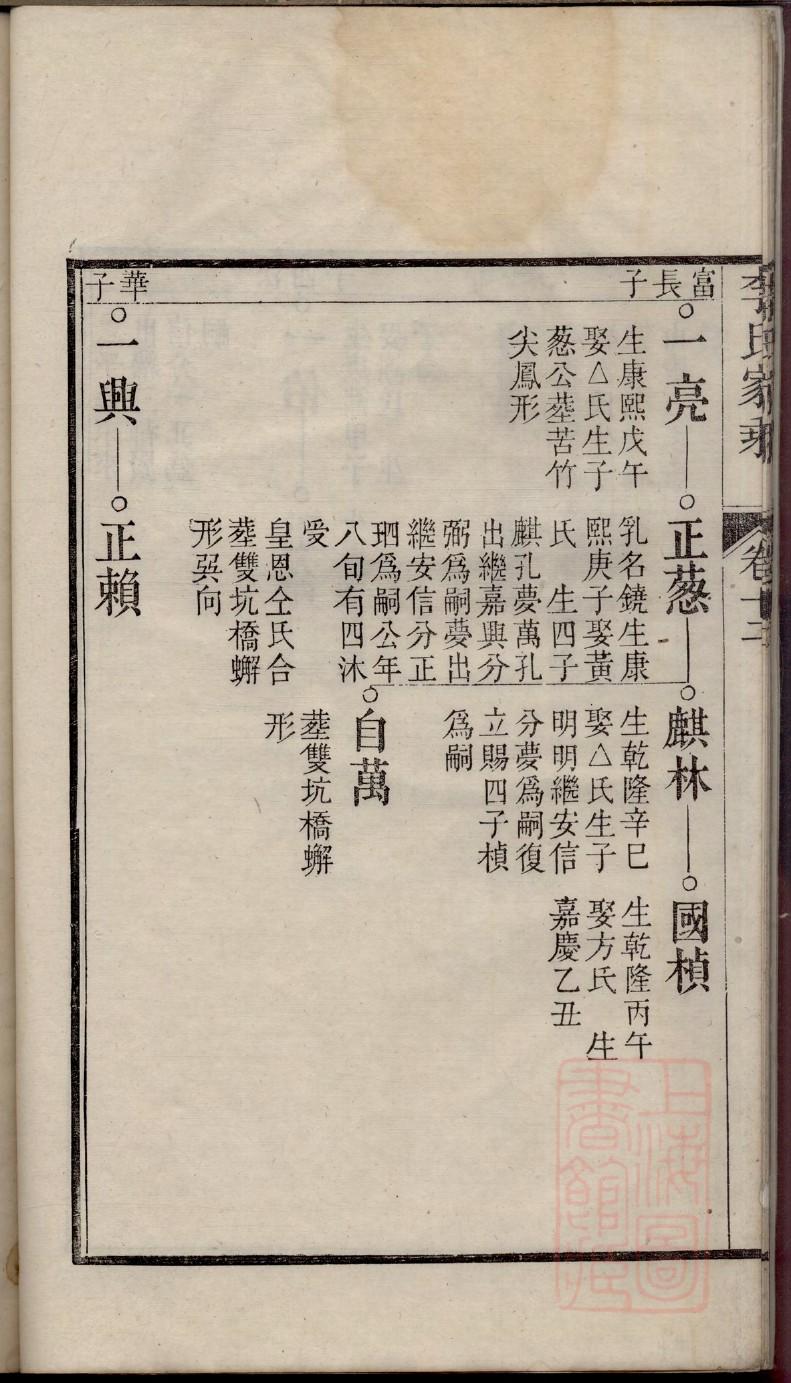 李氏家乘
卷十二
富長子
一亮
生康熙戊午
娶△氏生子
葱公塟苦竹
尖鳳形
正葱
乳名鐃生康
熙庚子娶黃
氏　生四子
麒孔夢萬孔
出繼嘉興分
弼爲嗣夢出
繼安信分正
珚爲嗣公年
八旬有四沐
受
皇恩仝氏合
塟雙坑橋蠏
形㢲向
麒林
生乾隆辛巳
娶△氏生子
明明繼安信
分夢爲嗣復
立賜四子楨
爲嗣
國楨
生乾隆丙午
娶方氏　生
嘉慶乙丑
自萬
塟雙坑橋蠏
形
華子
一興
正賴
上海圖
書館藏